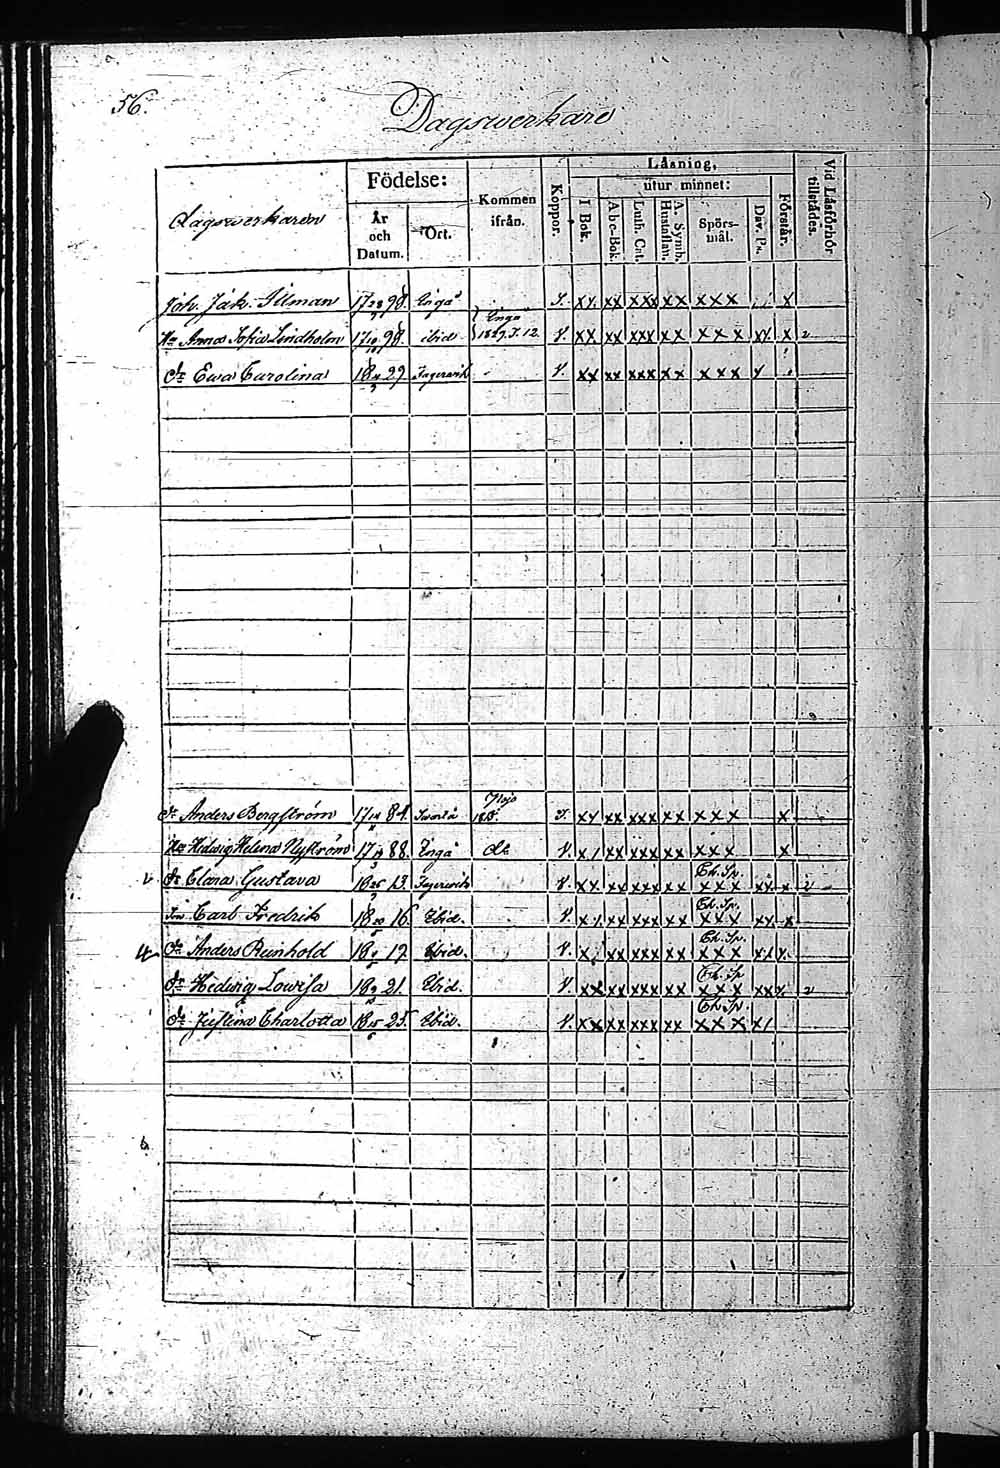 56.
Dagswerkare
Dagswerkaren
Födelse:
År och Datum.
Ort.
Kommen ifrån.
Koppor.
Läsning,
I Bok.
utur minnet:
Abc-Bok.
Luth. Cat.
A. Symb. Hustaflan.
Spörs-mål.
Dav. Ps.
Förstår.
Vid Läsförhör tillstädes.
Joh. Jak. Illman 17 98. Ingå J. xx xx xxx xx xxx x
Hu Anna Sofia Lindholm 17 98. ibid Ingå 1829. J. 12. V. xx xx xxx xx xxx xx x
Dr Ewa Carolina 18 29 Fagervik V. xx xx xxx xx xxx
Dr Anders Bergström 17 84. xx xxx xx xxx x
Hu Hedwig Helena Nyström 17 88. Ingå do V. xx xxx xx xxx x
Dr Clara Gustava 18 13. Fagervik V. xx xx xxx xx Ch. Sp. xxx xx x
Son Carl Fredrik 18 16. Ibid. V. xx xxx xx Ch. Sp. xxx xx x
Anders Reinhold 18 19. Ibid. V. xx xxx xx Ch. Sp. xxx
Dr Hedwig Lowisa 18 21. Ibid. V. xx xx xxx xx Ch. Sp. xxx
Dr Justina Charlotta 18 25. Ibid. V. xx xx xxx xx Ch. Sp. xxx